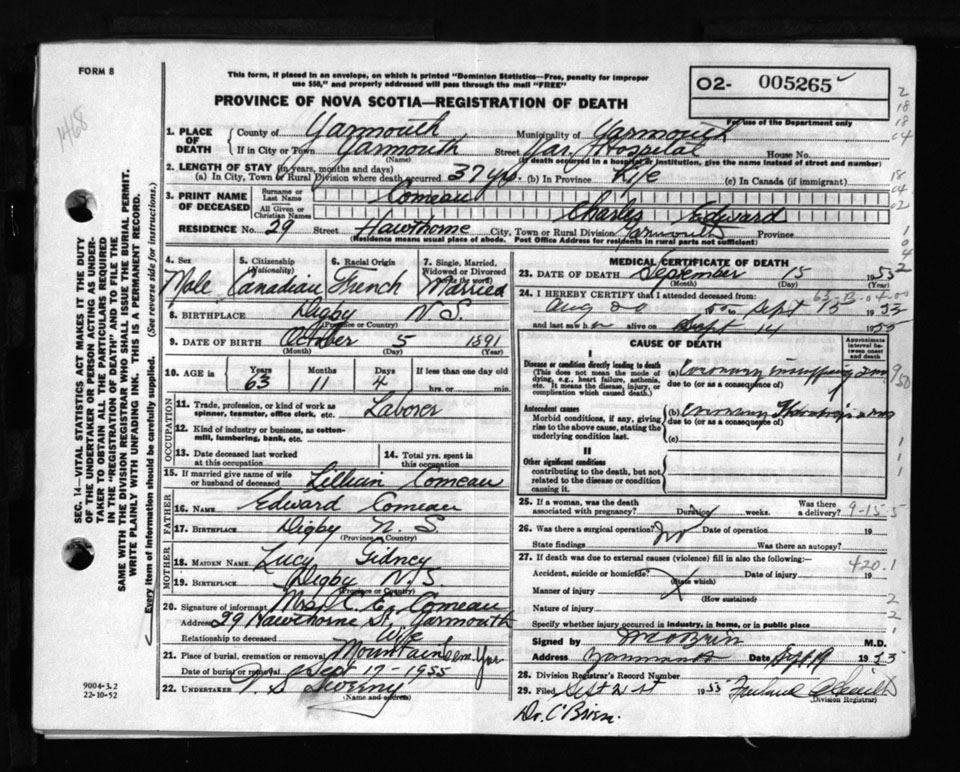 FORM 8
1468
This form, if placed in an envelope, on which is printed "Dominion Statistics—Free, penalty for improper
use $50," and properly addressed will pass through the mail "FREE"
PROVINCE OF NOVA SCOTIA—REGISTRATION OF DEATH
O2- 005265
For use of the Department only
1. PLACE OF DEATH
County of Yarmouth Municipality of Yarmouth
If in City or Town Yarmouth Street Yar. Hospital House No.
(Name) (If death occurred in a hospital or institution, give the name instead of street and number)
2. LENGTH OF STAY (in years, months and days)
(a) In City, Town or Rural Division where death occurred 37 yrs. (b) In Province Life (c) In Canada (if immigrant)
3. PRINT NAME OF DECEASED
Surname or Last Name Comeau
All Given or Christian Names Charles Edward
RESIDENCE No. 29 Street Hawthorne City, Town or Rural Division Yarmouth Province
(Residence means usual place of abode. Post Office Address for residents in rural parts not sufficient)
4. Sex Male
5. Citizenship (Nationality) Canadian
6. Racial Origin French
7. Single, Married, Widowed or Divorced (write the word) Married
8. BIRTHPLACE Digby N. S.
(Province or Country)
9. DATE OF BIRTH October 5 1891
(Month) (Day) (Year)
10. AGE in Years 63 Months 11 Days 4 If less than one day old
hrs. or min.
OCCUPATION
11. Trade, profession, or kind of work as
spinner, teamster, office clerk, etc. Laborer
12. Kind of industry or business, as cotton-
mill, lumbering, bank, etc.
13. Date deceased last worked
at this occupation
14. Total yrs. spent in
this occupation
15. If married give name of wife
or husband of deceased Lillian Comeau
FATHER
16. NAME Edward Comeau
17. BIRTHPLACE Digby N. S
(Province or Country)
MOTHER
18. MAIDEN NAME Lucy Gidney
19. BIRTHPLACE Digby N. S.
(Province or Country)
20. Signature of informant Mrs. C. E. Comeau
Address 29 Hawthorne St, Yarmouth
Relationship to deceased Wife
21. Place of burial, cremation or removal Mountain Cem. Yar
Date of burial or removal Sept 17-1955
22. UNDERTAKER S Sweeny
(Name and address)
MEDICAL CERTIFICATE OF DEATH
23. DATE OF DEATH September 15 1955
(Month) (Day)
24. I HEREBY CERTIFY that I attended deceased from
Aug 20 to Sept 15 1955
and last saw h alive on Sept 14 1955
CAUSE OF DEATH
Approximate interval between onset and death
I
Disease or condition directly leading to death
(This does not mean the mode of
dying, e.g., heart failure, asthenia,
etc. It means the disease, injury, or
complication which caused death.)
(a) Coronary
due to (or as a consequence of)
Antecedent causes
Morbid conditions, if any, giving
rise to the above cause, stating the
underlying condition last.
(b) Coronary Thrombosis
due to (or as a consequence of)
(c)
II
Other significant conditions
contributing to the death, but not
related to the disease or condition
causing it.
25. If a woman, was the death
associated with pregnancy? Duration weeks. Was there
a delivery?
9-15-5
26. Was there a surgical operation? No Date of operation 19
State findings Was there an autopsy?
27. If death was due to external causes (violence) fill in also the following:
420.1
Accident, suicide or homicide? (State which) Date of injury 19
Manner of injury
(How sustained)
Nature of injury
Specify whether injury occurred in industry, in home, or in public place
Signed by M.D.
Address Yarmouth Date Sept 19 1955
28. Division Registrar's Record Number
29. Filed Sept 21st 1955
(Division Registrar)
Dr. O'Brien.
SEC. 14—VITAL STATISTICS ACT MAKES IT THE DUTY
OF THE UNDERTAKER OR PERSON ACTING AS UNDER-
TAKER TO OBTAIN ALL THE PARTICULARS REQUIRED
IN THE "REGISTRATION OF DEATH" AND TO FILE THE
SAME WITH THE DIVISION REGISTRAR WHO SHALL ISSUE THE BURIAL PERMIT.
WRITE PLAINLY WITH UNFADING INK. THIS IS A PERMANENT RECORD.
Every item of information should be carefully supplied. (See reverse side for instructions.)
9004-3.2
22-10-52